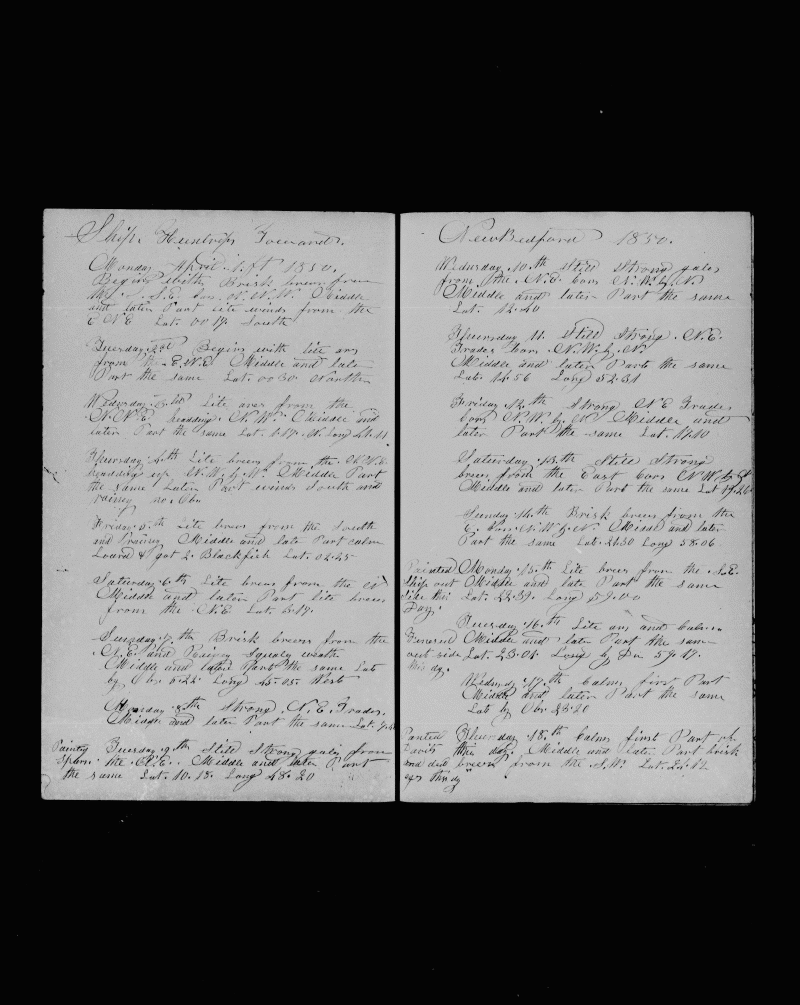 Ship Huntress Towards
Monday April 1st 1850.
Begins with Brisk brees from
S.E. bor N.N.W. Middle
and later Part lite winds from the
E N E Lat. 00 17 South
Tuesday 2nd Begins with lite ars
from the E.N.E Middle and late
Part the same Lat. 00 30 North
Wedesday 3rd Lite ares from the
N.N.E. heading N.W. Middle and
later Part the same Lat. 1.17. N. Long
Thursday 4th Lite brees from the
heading up N.W. by W. Middle Part
the same Later Part winds South and
rainey no. Obs
Friday 5th Lite brees from the South
and Rainey Middle and late Part calm
Lourd & got 2 Blackfish Lat. 02.25
Saturday 6th Lite brees from the N
Middle and later Part lite brees
from the N.E Lat. 3.17.
Sunday 7th Brisk brees from the
N.E. and Rainey Squaly weath
Middle and later Part the same Lat
by Obs 5.22 Long 45.05 West
Monday 8th Strong N.E. Trades.
Middle and later Part the same Lat.
Painting Tuesday 9th Still Strong gals from
Spars. the N.E. Middle and later Part
the same Lat. 10.18. Long 48.20
New Bedford 1850.
Wedesday 10th Still Strong gales
from the N.E. bors N.W. by N.
Middle and later Part the same
Lat. 12.40
Thursday 11 Still Strong N.E.
Trades bors N.W. by N.
Middle and later Part the same
Lat. 14.56 Long 52.31
Friday 12th Strong N E Trades
bors N.W. by N Middle and
later Part the same Lat. 17.10
Saturday 13th Still Strong
brees from the East bors N W by N
Middle and later Part the same Lat 19.20
Sunday 14th Brisk brees from the
E. bors N.W. by N. Middl and later
Part the same Lat. 21.30 Long 58.06
Painted Monday 15th Lite brees from the S.E.
Ship out Middle and late Part the same
Side this Lat. 22.39. Long 59.00
Day.
Tuesday 16th Lite ars and Calm
Middle and later Part the same
out side Lat. 23.01 Long by Du 59.17.
this dy.
Wedesdy 17th Calm first Part
Middle and later Part the same
Lat by Obs 23.20
Panted Thursday 18th Calms first Part of
Davits this day. Middle and late Part brisk
and brees from the S.W. Lat. 24.12
this dy